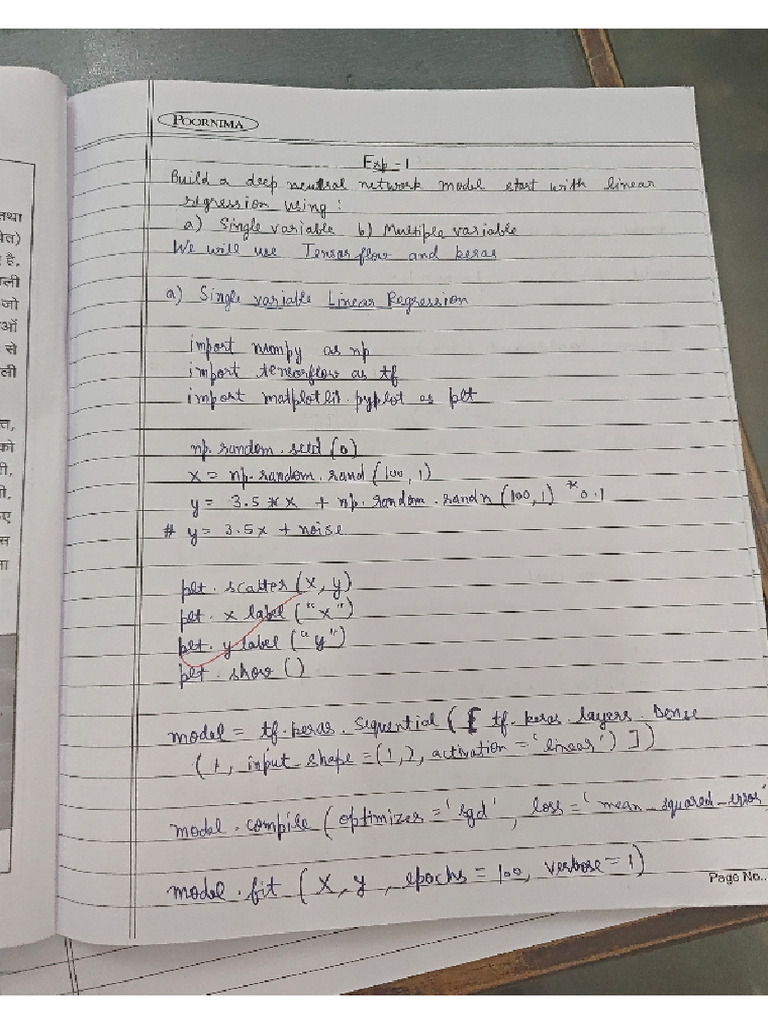 POORNIMA
Exp - 1
Build a deep neutral network model start with linear
regression using :
a) Single variable b) Multiple variable
We will use Tensorflow and keras
a) Single variable Linear Regression
import numpy as np
import tensorflow as tf
import matplotlib.pyplot as plt
np.random.seed(0)
x = np.random.rand(100,1)
y = 3.5 * x + np.random.randn(100,1) * 0.1
# y = 3.5x + noise
plt.scatter(x, y)
plt.xlabel("x")
plt.ylabel("y")
plt.show()
model = tf.keras.Sequential([tf.keras.layers.Dense
(1, input shape=(1,), activation='linear')])
model.compile(optimizer='sgd', loss='mean_squared_error'
model.fit(X, y, epochs=100, verbose=1)
Page No..
तथा
है,
जो
से
को